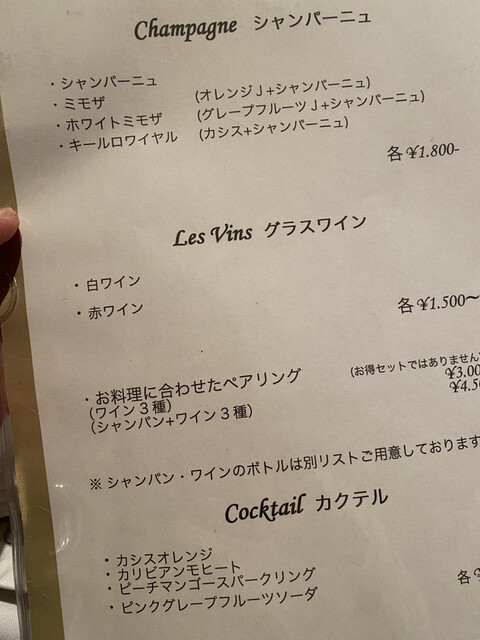 Champagne シャンパーニュ
・シャンパーニュ
・ミモザ (オレンジJ+シャンパーニュ)
・ホワイトミモザ (グレープフルーツJ+シャンパーニュ)
・キールロワイヤル (カシス+シャンパーニュ)
各 ¥1.800-
Les Vins グラスワイン
・白ワイン
・赤ワイン 各 ¥1.500〜
・お料理に合わせたペアリング (お得セットではありません
(ワイン3種) ¥3.00
(シャンパン+ワイン3種) ¥4.50
※シャンパン・ワインのボトルは別リストご用意しております
Cocktail カクテル
・カシスオレンジ
・カリビアンモヒート
・ピーチマンゴースパークリング 各
・ピンクグレープフルーツソーダ